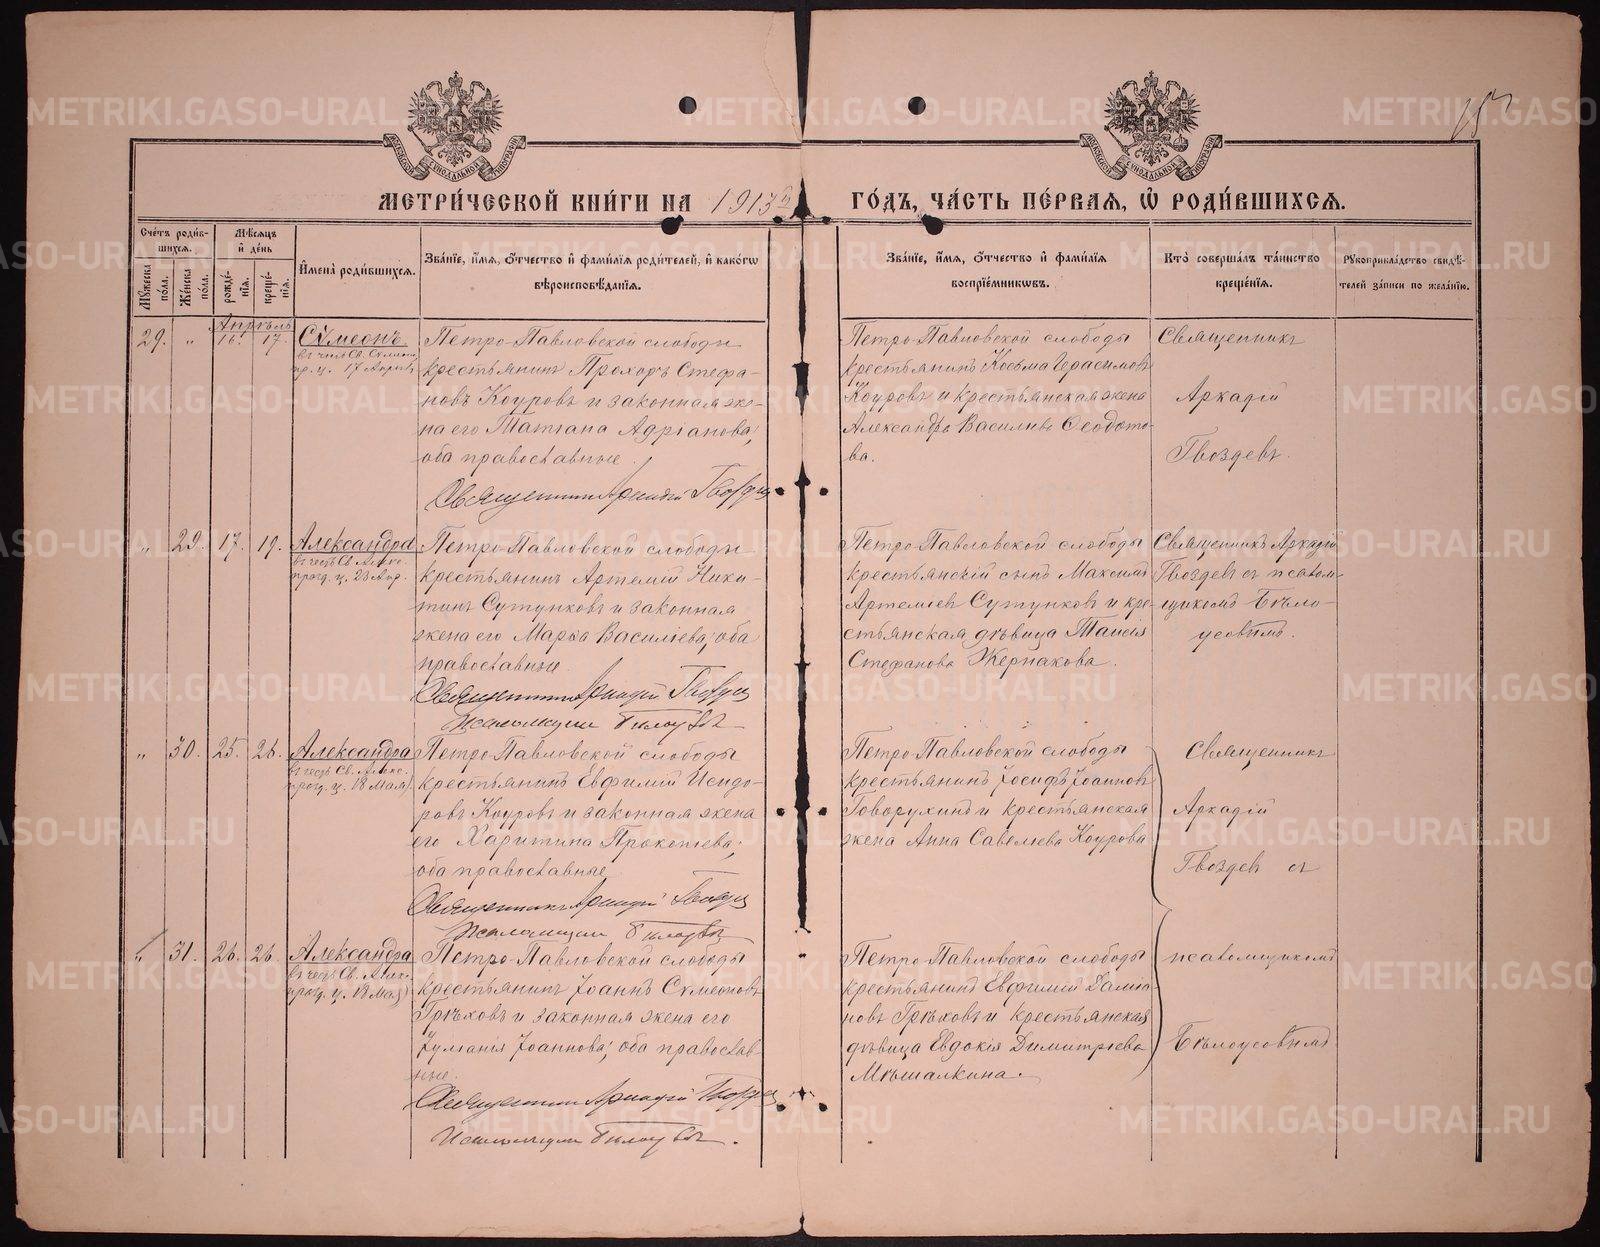 МЕТРИ́ЧЕСКОЙ КНИ́ГИ НА 1913й ГО́ДЪ, ЧА́СТЬ ПЕ́РВАѦ, Ѡ РОДИ́ВШИХСѦ.
Сче́тъ роди́в-
шихсѧ.
Мѣ́сѧцъ
и҆ де́нь
Мꙋ́жеска по́ла.
Же́нска по́ла.
рожде́-
нїѧ.
креще́-
нїѧ.
И҆мена̀ роди́вшихсѧ.
Зва́нїе, и҆́мѧ, ѻ҆́тчество и҆ фами́лїѧ роди́телей, и҆ како́гѡ
вѣроисповѣ́данїѧ.
Зва́нїе, и҆́мѧ, ѻ҆́тчество и҆ фами́лїѧ
воспрїе́мникѡвъ.
Кто̀ соверша́лъ та́инство
креще́нїѧ.
Рꙋкоприкла́дство свидѣ́-
телей за́писи по жела́нїю.
Апрѣль
29. " 16. 17. Сѵмеонъ
въ честь Св. Сѵмеона
пр. ц. 17 Апрѣля
Петро-Павловской слободы
крестьянинъ Прохоръ Стефа-
новъ Коуровъ и законная же-
на его Татіана Адріанова,
оба православные.
Священникъ Аркадій Гвоздевъ
Петро-Павловской слободы
крестьянинъ Косьма Герасимовъ
Коуровъ и крестьянская жена
Александра Васильева Ѳеодото-
ва.
Священникъ
Аркадій
Гвоздевъ.
" 29. 17. 19. Александра
въ честь Св. Алекс.
празд. ц. 23 Апр.
Петро-Павловской слободы
крестьянинъ Артемій Ники-
тинъ Сутунковъ и законная
жена его Марѳа Василіева, оба
православные.
Священникъ Аркадій Гвоздевъ
Псаломщикъ Бѣлоусовъ
Петро-Павловской слободы
крестьянскій сынъ Максимъ
Артеміевъ Сутунковъ и кре-
стьянская дѣвица Таисія
Стефанова Жернакова.
Священникъ Аркадій
Гвоздевъ съ псалом-
щикомъ Бѣло-
усовымъ.
" 30. 25. 26. Александра
въ честь Св. Алекс.
празд. ц. 18 Мая)
Петро-Павловской слободы
крестьянинъ Евфимій Исидо-
ровъ Коуровъ и законная жена
его Харитина Прокопіева,
оба православные.
Священникъ Аркадій Гвоздевъ
Псаломщикъ Бѣлоусовъ
Петро-Павловской слободы
крестьянинъ Іосифъ Іоанновъ
Говорухинъ и крестьянская
жена Анна Савеліева Коурова
Священникъ
Аркадій
Гвоздевъ съ
" 31. 26. 26. Александра
въ честь Св. Алекс.
празд. ц. 18 Мая)
Петро-Павловской слободы
крестьянинъ Іоаннъ Сѵмеоновъ
Грѣховъ и законная жена его
Іуліанія Іоаннова, оба православ-
ные.
Священникъ Аркадій Гвоздевъ
Псаломщикъ Бѣлоусовъ.
Петро-Павловской слободы
крестьянинъ Евфимій Даміа-
новъ Грѣховъ и крестьянская
дѣвица Евдокія Димитріева
Мѣшалкина.
псаломщикомъ
Бѣлоусовымъ
METRIKI.GASO-URAL.RU